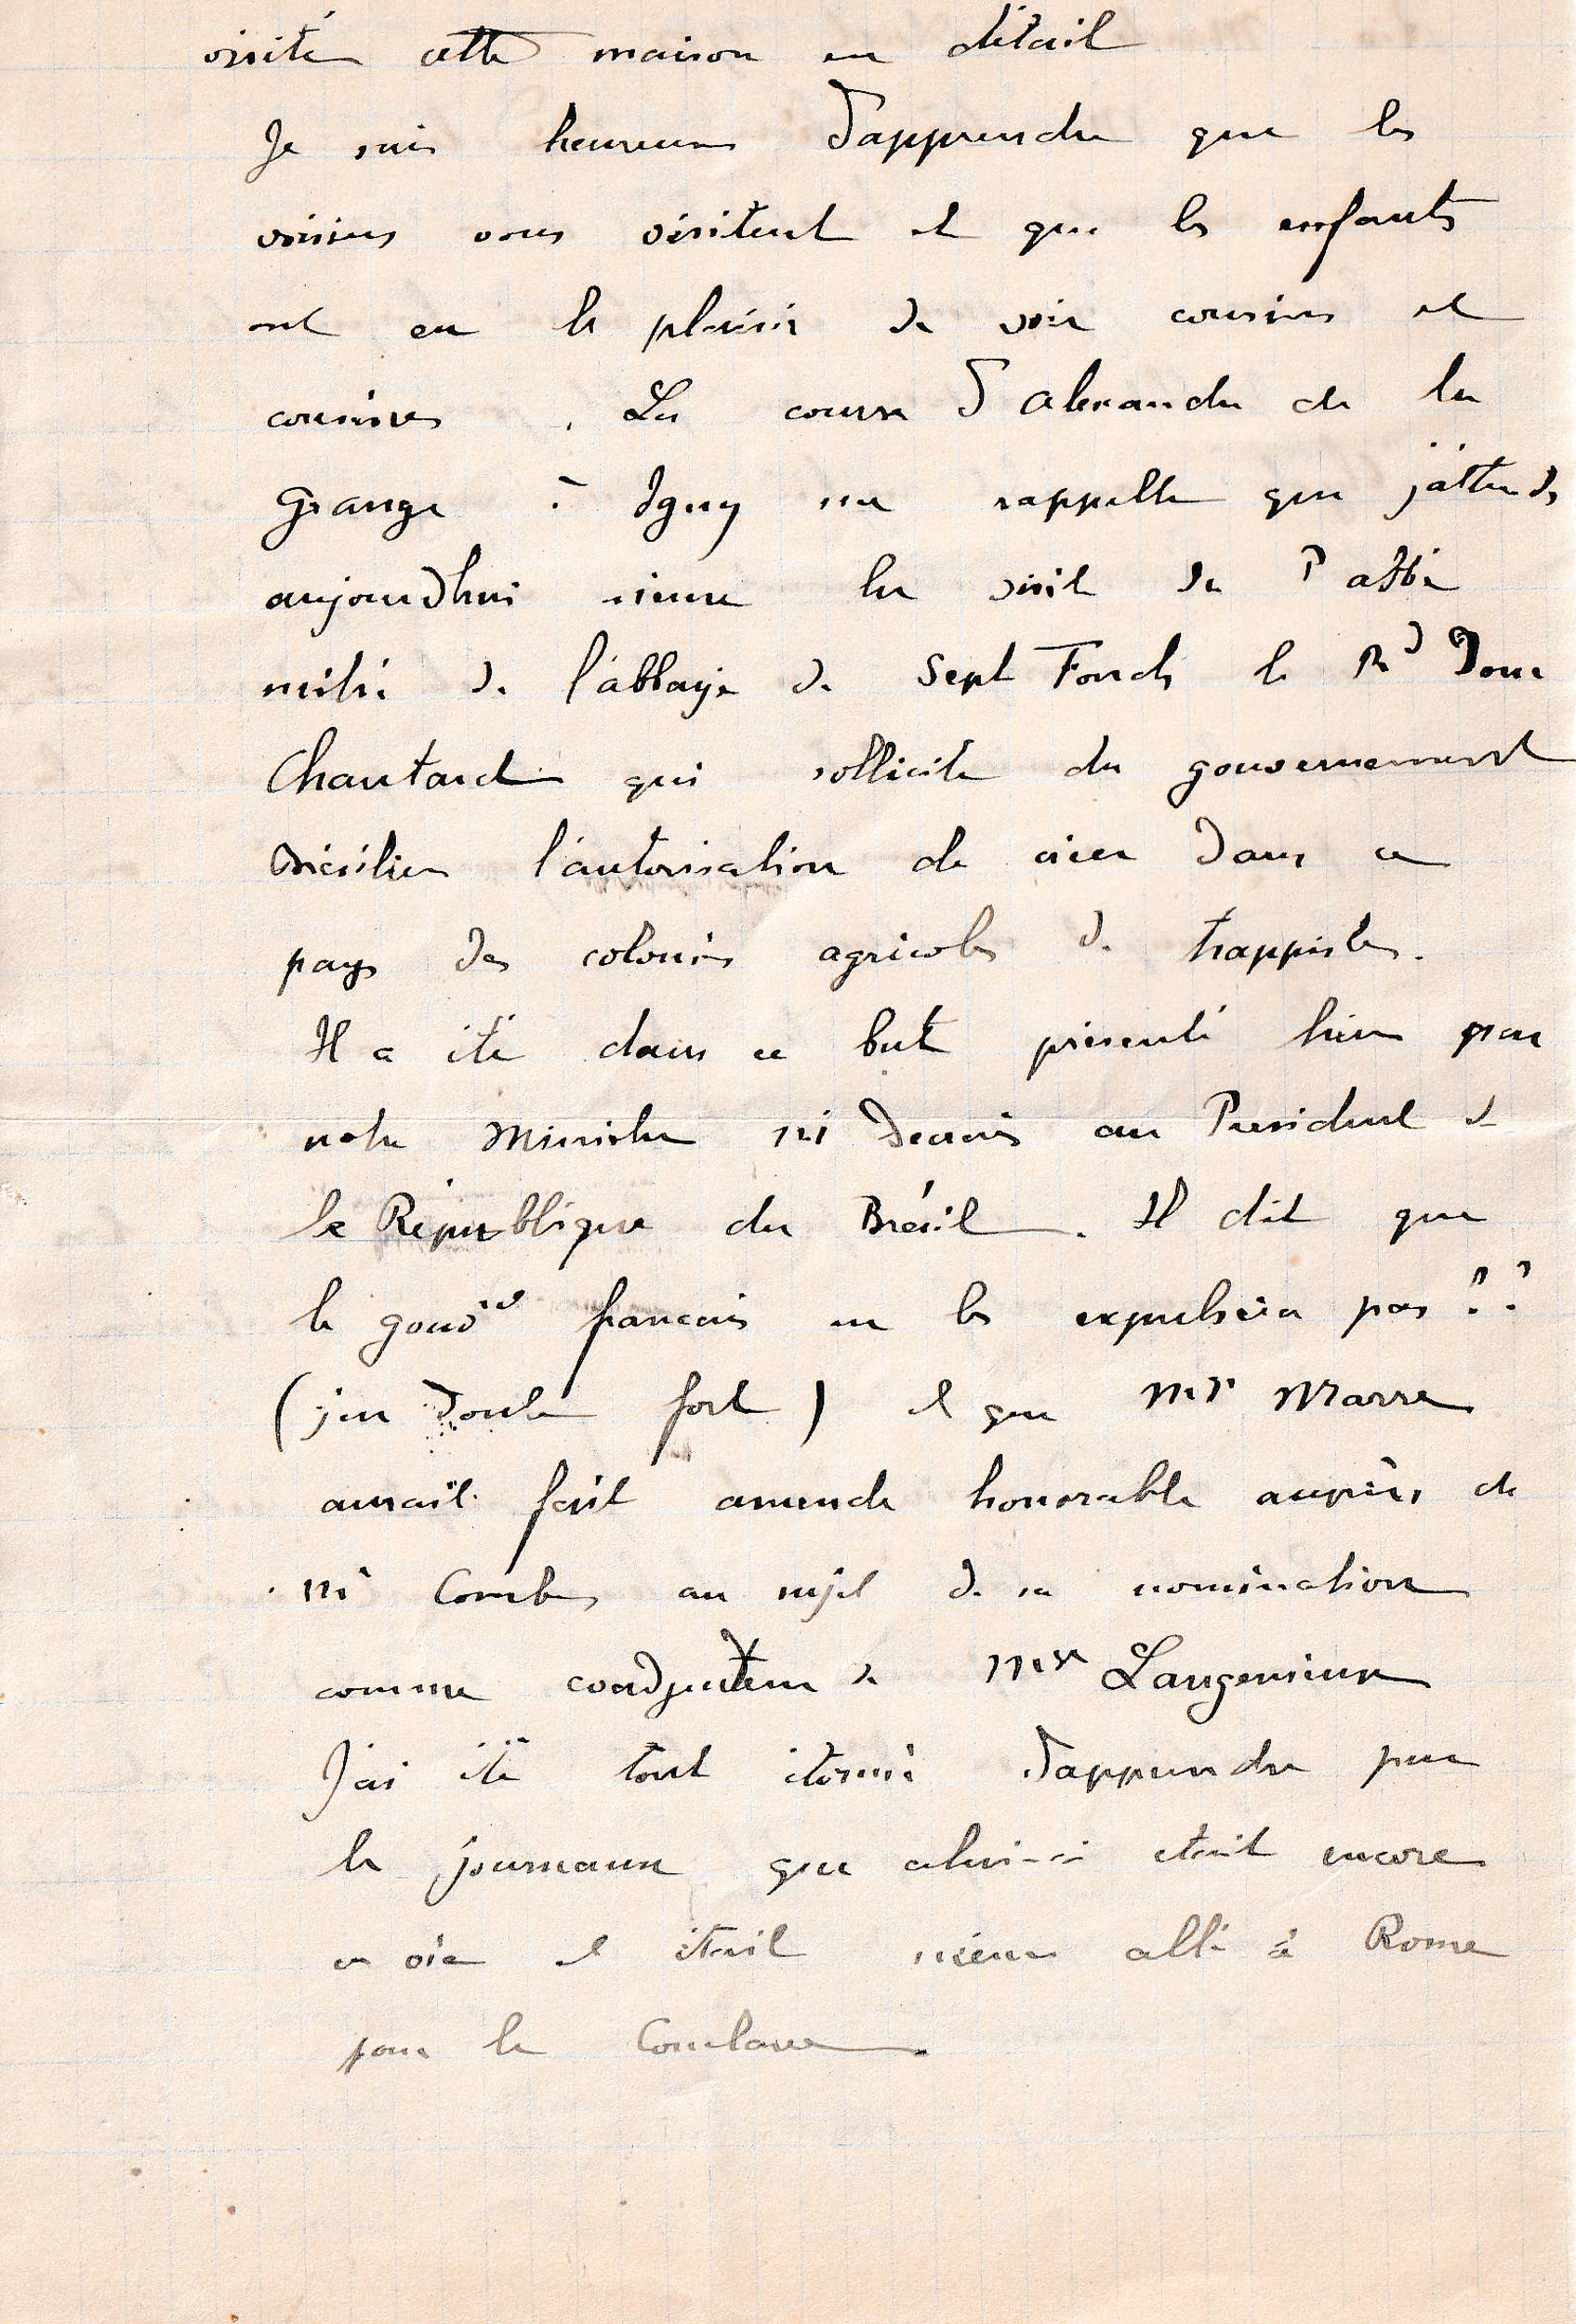 visité cette maison en détail
Je suis heureux d'apprendre que les
voisins vous visitent et que les enfants
ont eu le plaisir de voir cousins et
cousines. La course d'Alexandre de la
Grange à Igny me rappelle que j'attends
aujourdhui même la visite de l'abbé
mitré de l'abbaye de Sept Fonds le Rd Dom
Chautard qui sollicite du gouvernement
Brésilien l'autorisation de créer dans ce
pays des colonies agricoles de trappistes.
Il a été dans ce but présenté hier par
notre Ministre Mr Decrais au Président de
la République du Brésil. Il dit que
le gouvt français ne les expulsera pas ??
(j'en doute fort) et que Mgr Marre
aurait fait amende honorable auprès de
Mr Combes au sujet de sa nomination
comme coadjuteur de Mgr Langenieux
J'ai été tout étonné d'apprendre par
les journaux que celui-ci était encore
en vie et était même allé à Rome
pour le Conclave.